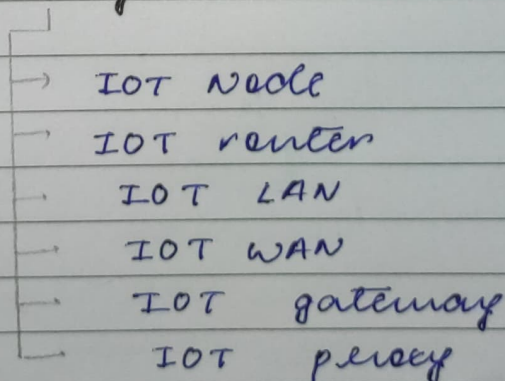 IOT Node
IOT router
IOT LAN
IOT WAN
IOT gateway
IOT proxy